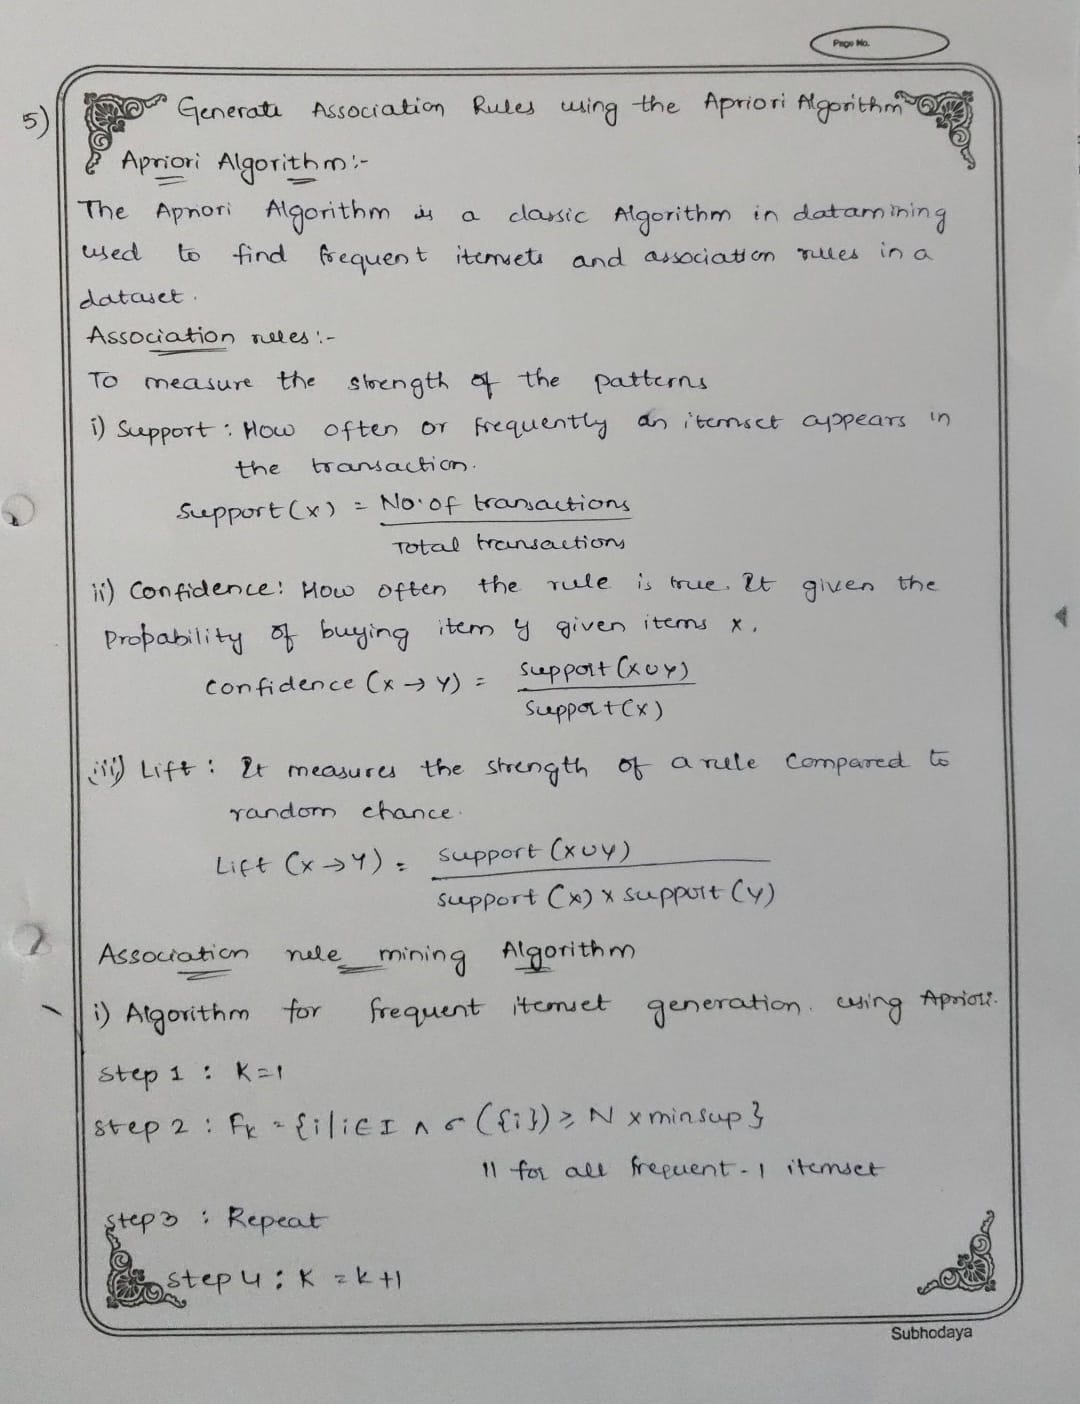 Page No.
5) Generate Association Rules using the Apriori Algorithm
Apriori Algorithm:-
The Apriori Algorithm is a classic Algorithm in datamining
used to find frequent itemsets and association rules in a
dataset.
Association rules:-
To measure the strength of the patterns
i) Support : How often or frequently an itemset appears in
the transaction.
Support(x) = No. of transactions
Total transactions
ii) Confidence: How often the rule is true. It given the
Probability of buying item y given items x.
Confidence (x → y) = Support (x∪y)
Support(x)
iii) Lift : It measures the strength of a rule compared to
random chance.
Lift (x→y) = support (x∪y)
support (x) x support (y)
Association rule mining Algorithm
i) Algorithm for frequent itemset generation. using Apriori.
Step 1 : K=1
Step 2 : Fk = {i|i∈I ∧ σ({i}) ≥ N x minsup}
// for all frequent-1 itemset
Step 3 : Repeat
Step 4 : K = k+1
Subhodaya